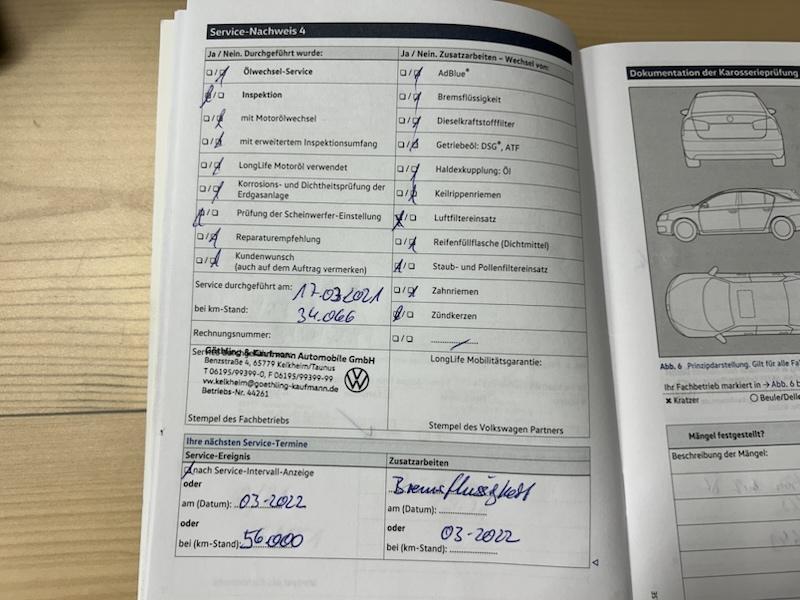 Service-Nachweis 4
Ja / Nein. Durchgeführt wurde:
Ölwechsel-Service
Inspektion
mit Motorölwechsel
mit erweitertem Inspektionsumfang
LongLife Motoröl verwendet
Korrosions- und Dichtheitsprüfung der
Erdgasanlage
Prüfung der Scheinwerfer-Einstellung
Reparaturempfehlung
Kundenwunsch
(auch auf dem Auftrag vermerken)
Service durchgeführt am: 17.03.2021
bei km-Stand: 34.066
Rechnungsnummer:
Göthling & Kaufmann Automobile GmbH
Benzstraße 4, 65779 Kelkheim/Taunus
T 06195/99399-0, F 06195/99399-99
vw.kelkheim@goethling-kaufmann.de
Betriebs-Nr. 44261
Stempel des Fachbetriebs
Ja / Nein. Zusatzarbeiten – Wechsel von:
AdBlue®
Bremsflüssigkeit
Dieselkraftstofffilter
Getriebeöl: DSG®, ATF
Haldexkupplung: Öl
Keilrippenriemen
Luftfiltereinsatz
Reifenfüllflasche (Dichtmittel)
Staub- und Pollenfiltereinsatz
Zahnriemen
Zündkerzen
LongLife Mobilitätsgarantie:
Stempel des Volkswagen Partners
Ihre nächsten Service-Termine
Service-Ereignis
nach Service-Intervall-Anzeige
oder
am (Datum): 03-2022
oder
bei (km-Stand): 56.000
Zusatzarbeiten
Bremsflüssigkeit
am (Datum):
oder 03-2022
bei (km-Stand):
Dokumentation der Karosserieprüfung
Abb. 6 Prinzipdarstellung. Gilt für alle
Ihr Fachbetrieb markiert in → Abb. 6
× Kratzer
○ Beule/Delle
Mängel festgestellt?
Beschreibung der Mängel: